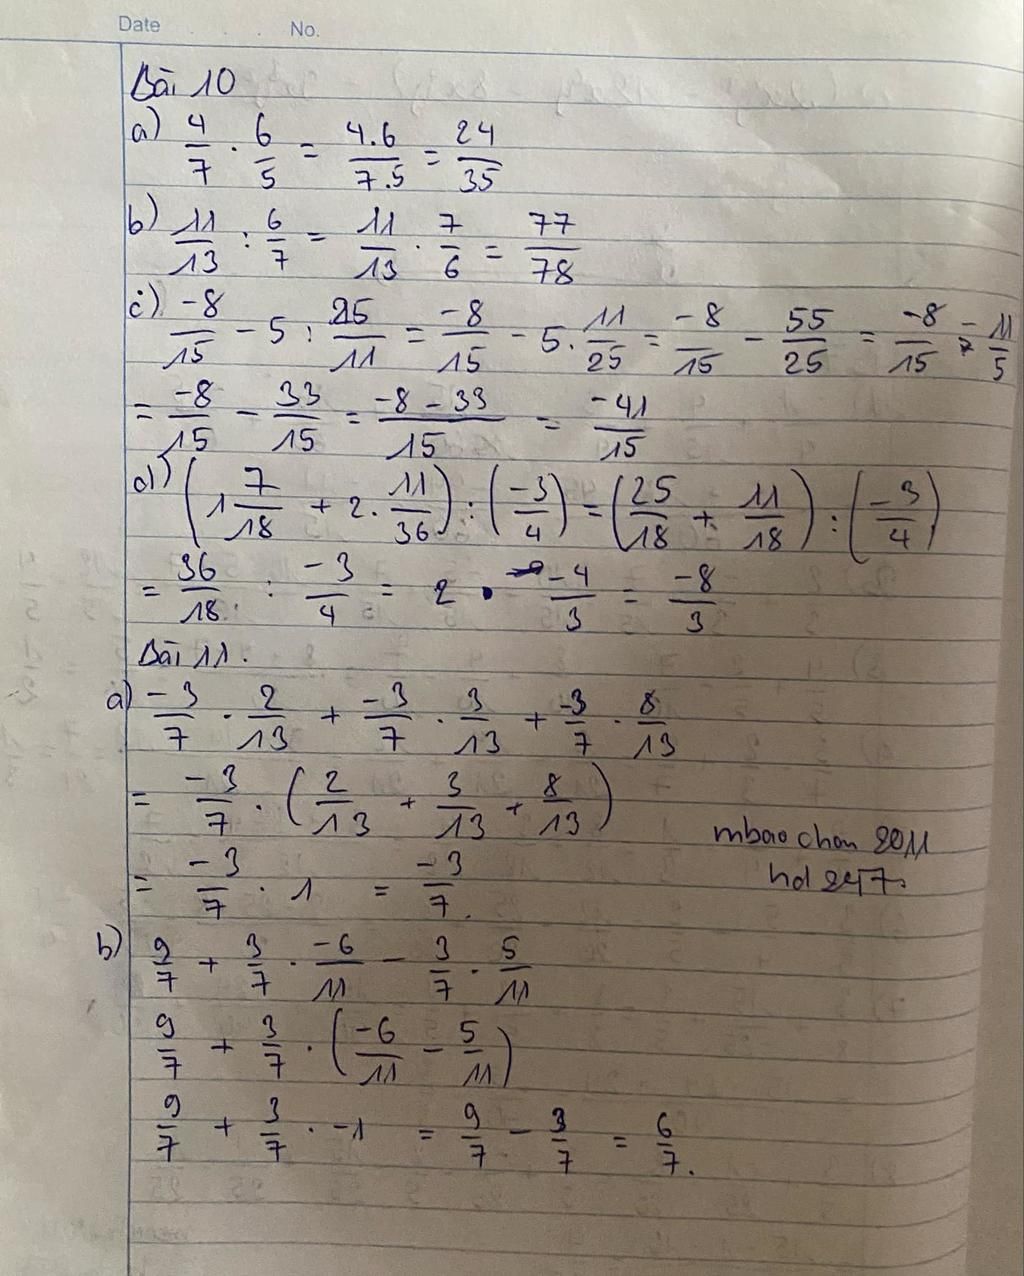 Date No.
Bài 10
a) 4/7 . 6/5 = 4.6/7.5 = 24/35
b) 11/13 : 6/7 = 11/13 . 7/6 = 77/78
c) -8/15 - 5 : 25/11 = -8/15 - 5 . 11/25 = -8/15 - 55/25 = -8/15 - 11/5
= -8/15 - 33/15 = -8-33/15 = -41/15
d) (1 7/18 + 2 . 11/36) : (-3/4) = (25/18 + 11/18) : (-3/4)
= 36/18 : -3/4 = 2 . -4/3 = -8/3
Bài 11.
a) -3/7 . 2/13 + -3/7 . 3/13 + -3/7 . 8/13
= -3/7 . (2/13 + 3/13 + 8/13)
= -3/7 . 1 = -3/7.
mbao chan 2011
hd 247.
b) 9/7 + 3/7 . -6/11 - 3/7 . 5/11
9/7 + 3/7 . (-6/11 - 5/11)
9/7 + 3/7 . -1 = 9/7 - 3/7 = 6/7.